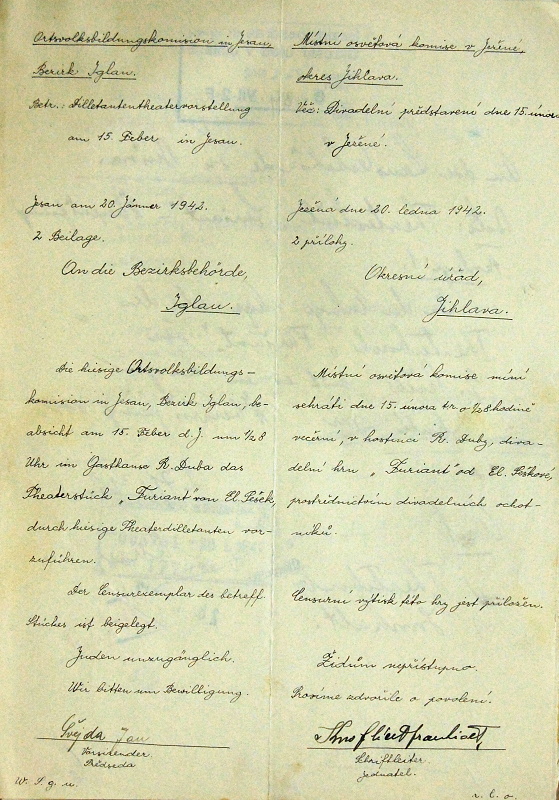 Ortsvolksbildungskomision in Jesau,
Bezirk Iglau.
Betr.: Dilletantentheatervorstellung
am 15. Feber in Jesau.
Jesau am 20. Jänner 1942.
2 Beilage.
An die Bezirksbehörde,
Iglau.
Die hiesige Ortsvolksbildungs-
komision in Jesau, Bezirk Iglau, be-
absicht am 15. Feber d. J. um 1/2 8
Uhr im Gasthause R. Duba das
Theaterstück "Furiant" von El. Pešek,
durch hiesige Theaterdilletanten vor-
zuführen.
Der Censurexemplar der betreff.
Stückes ist beigelegt.
Juden unzugänglich.
Wir bitten um Bewilligung.
Švejda Jan
Vorsitzender.
Předseda
W. S. g. u.
Místní osvětová komise v Ježené,
okres Jihlava.
Věc: Divadelní představení dne 15. února
v Ježené.
Ježená dne 20. ledna 1942.
2 přílohy.
Okresní úřad,
Jihlava.
Místní osvětová komise míní
sehráti dne 15. února t. r. o 1/2 8 hodině
večerní, v hostinci R. Duby, diva-
delní hru "Furiant" od El. Peškové,
prostřednictvím divadelních ochot-
níků.
Censurní výtisk této hry jest přiložen.
Židům nepřístupno.
Prosíme zdvořile o povolení.
Schriftleiter.
Jednatel.